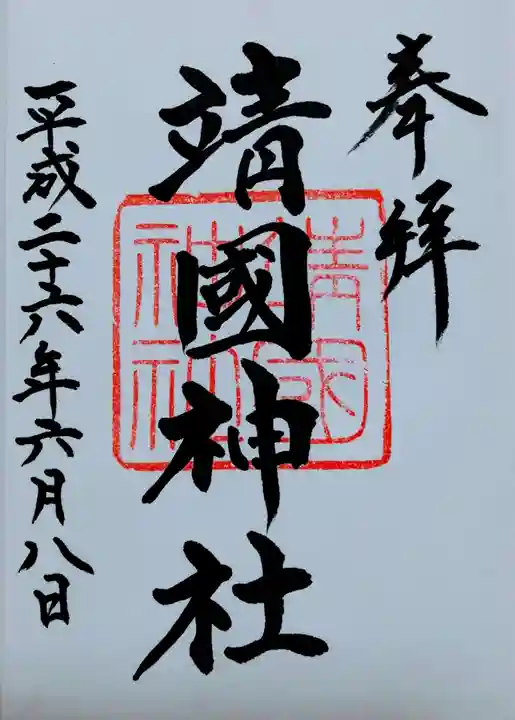 奉拝
靖國神社
靖國神社
平成二十六年六月八日